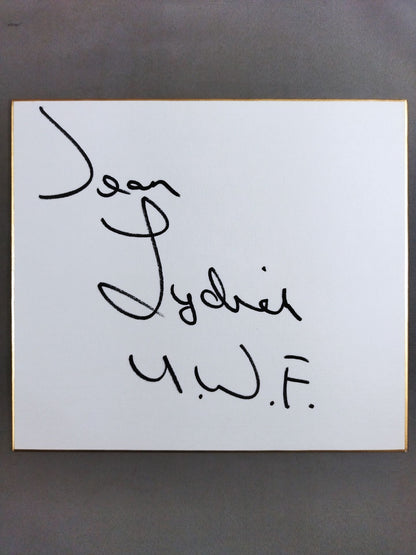 Jean
Lydick
U.W.F.